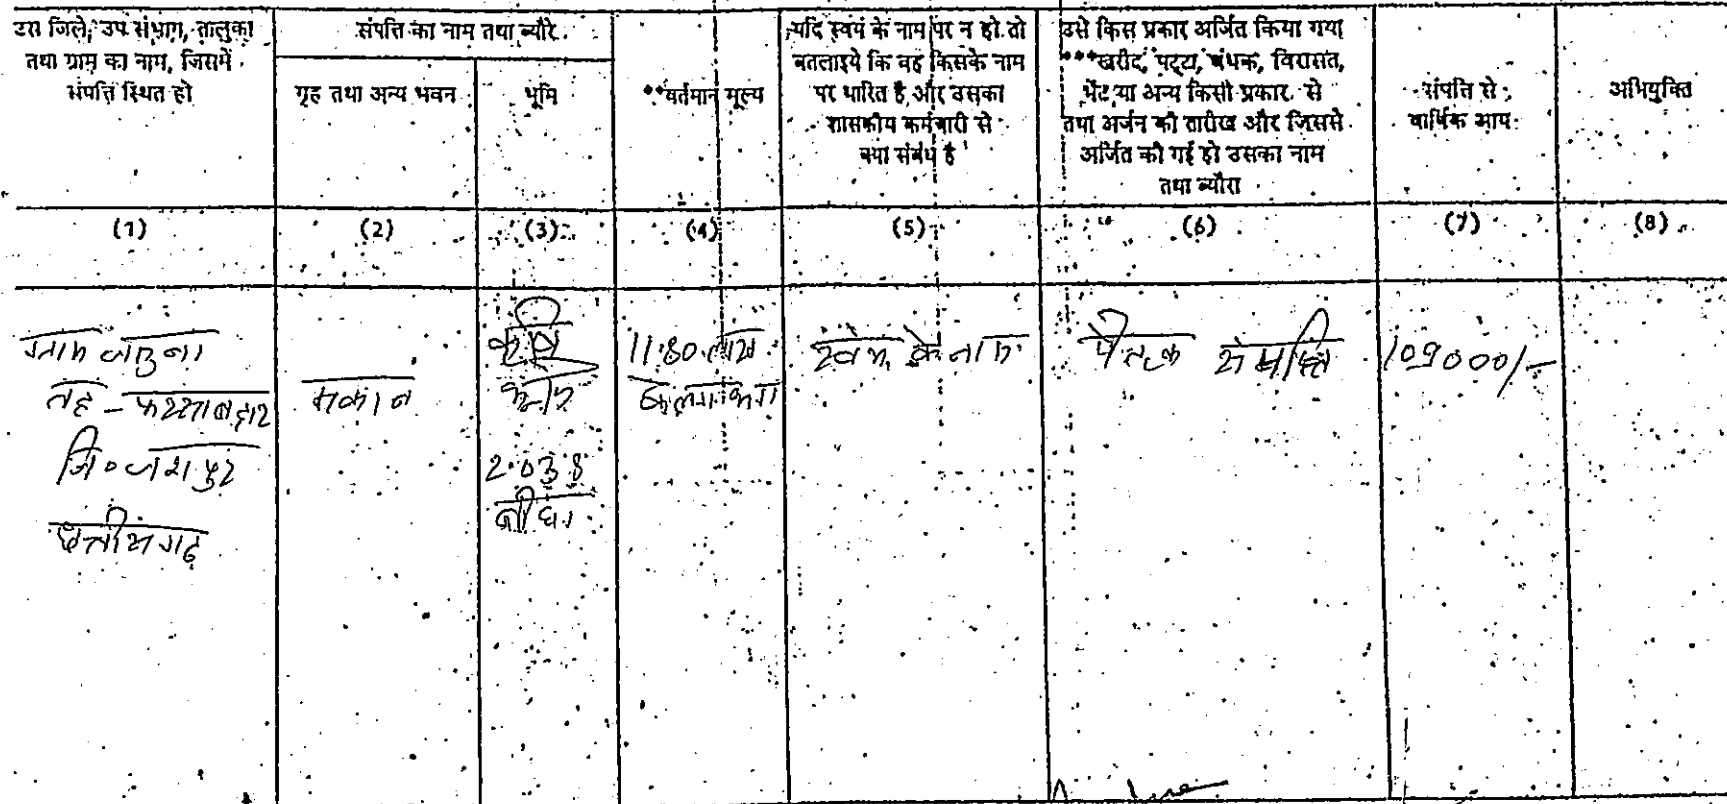 उस जिले, उप संभाग, तालुका
तथा ग्राम का नाम, जिसमें
संपत्ति स्थित हो
संपत्ति का नाम तथा ब्यौरे
गृह तथा अन्य भवन
भूमि
**वर्तमान मूल्य
यदि स्वयं के नाम पर न हो तो
बतलाइये कि वह किसके नाम
पर धारित है और उसका
शासकीय कर्मचारी से
क्या संबंध है
उसे किस प्रकार अर्जित किया गया
***खरीद, पट्टा, बंधक, विरासत,
भेंट या अन्य किसी प्रकार से
तथा अर्जन की तारीख और जिससे
अर्जित की गई हो उसका नाम
तथा ब्यौरा
संपत्ति से
वार्षिक आय
अभियुक्ति
(1) (2) (3) (4) (5) (6) (7) (8)
ग्राम
तह - फरसाबहार
जि० जशपुर
छत्तीसगढ़
मकान
कृषि
भूमि
2.038
बीघा
11.80 लाख
लगभग
स्वयं के नाम
पैतृक संपत्ति
109000/-